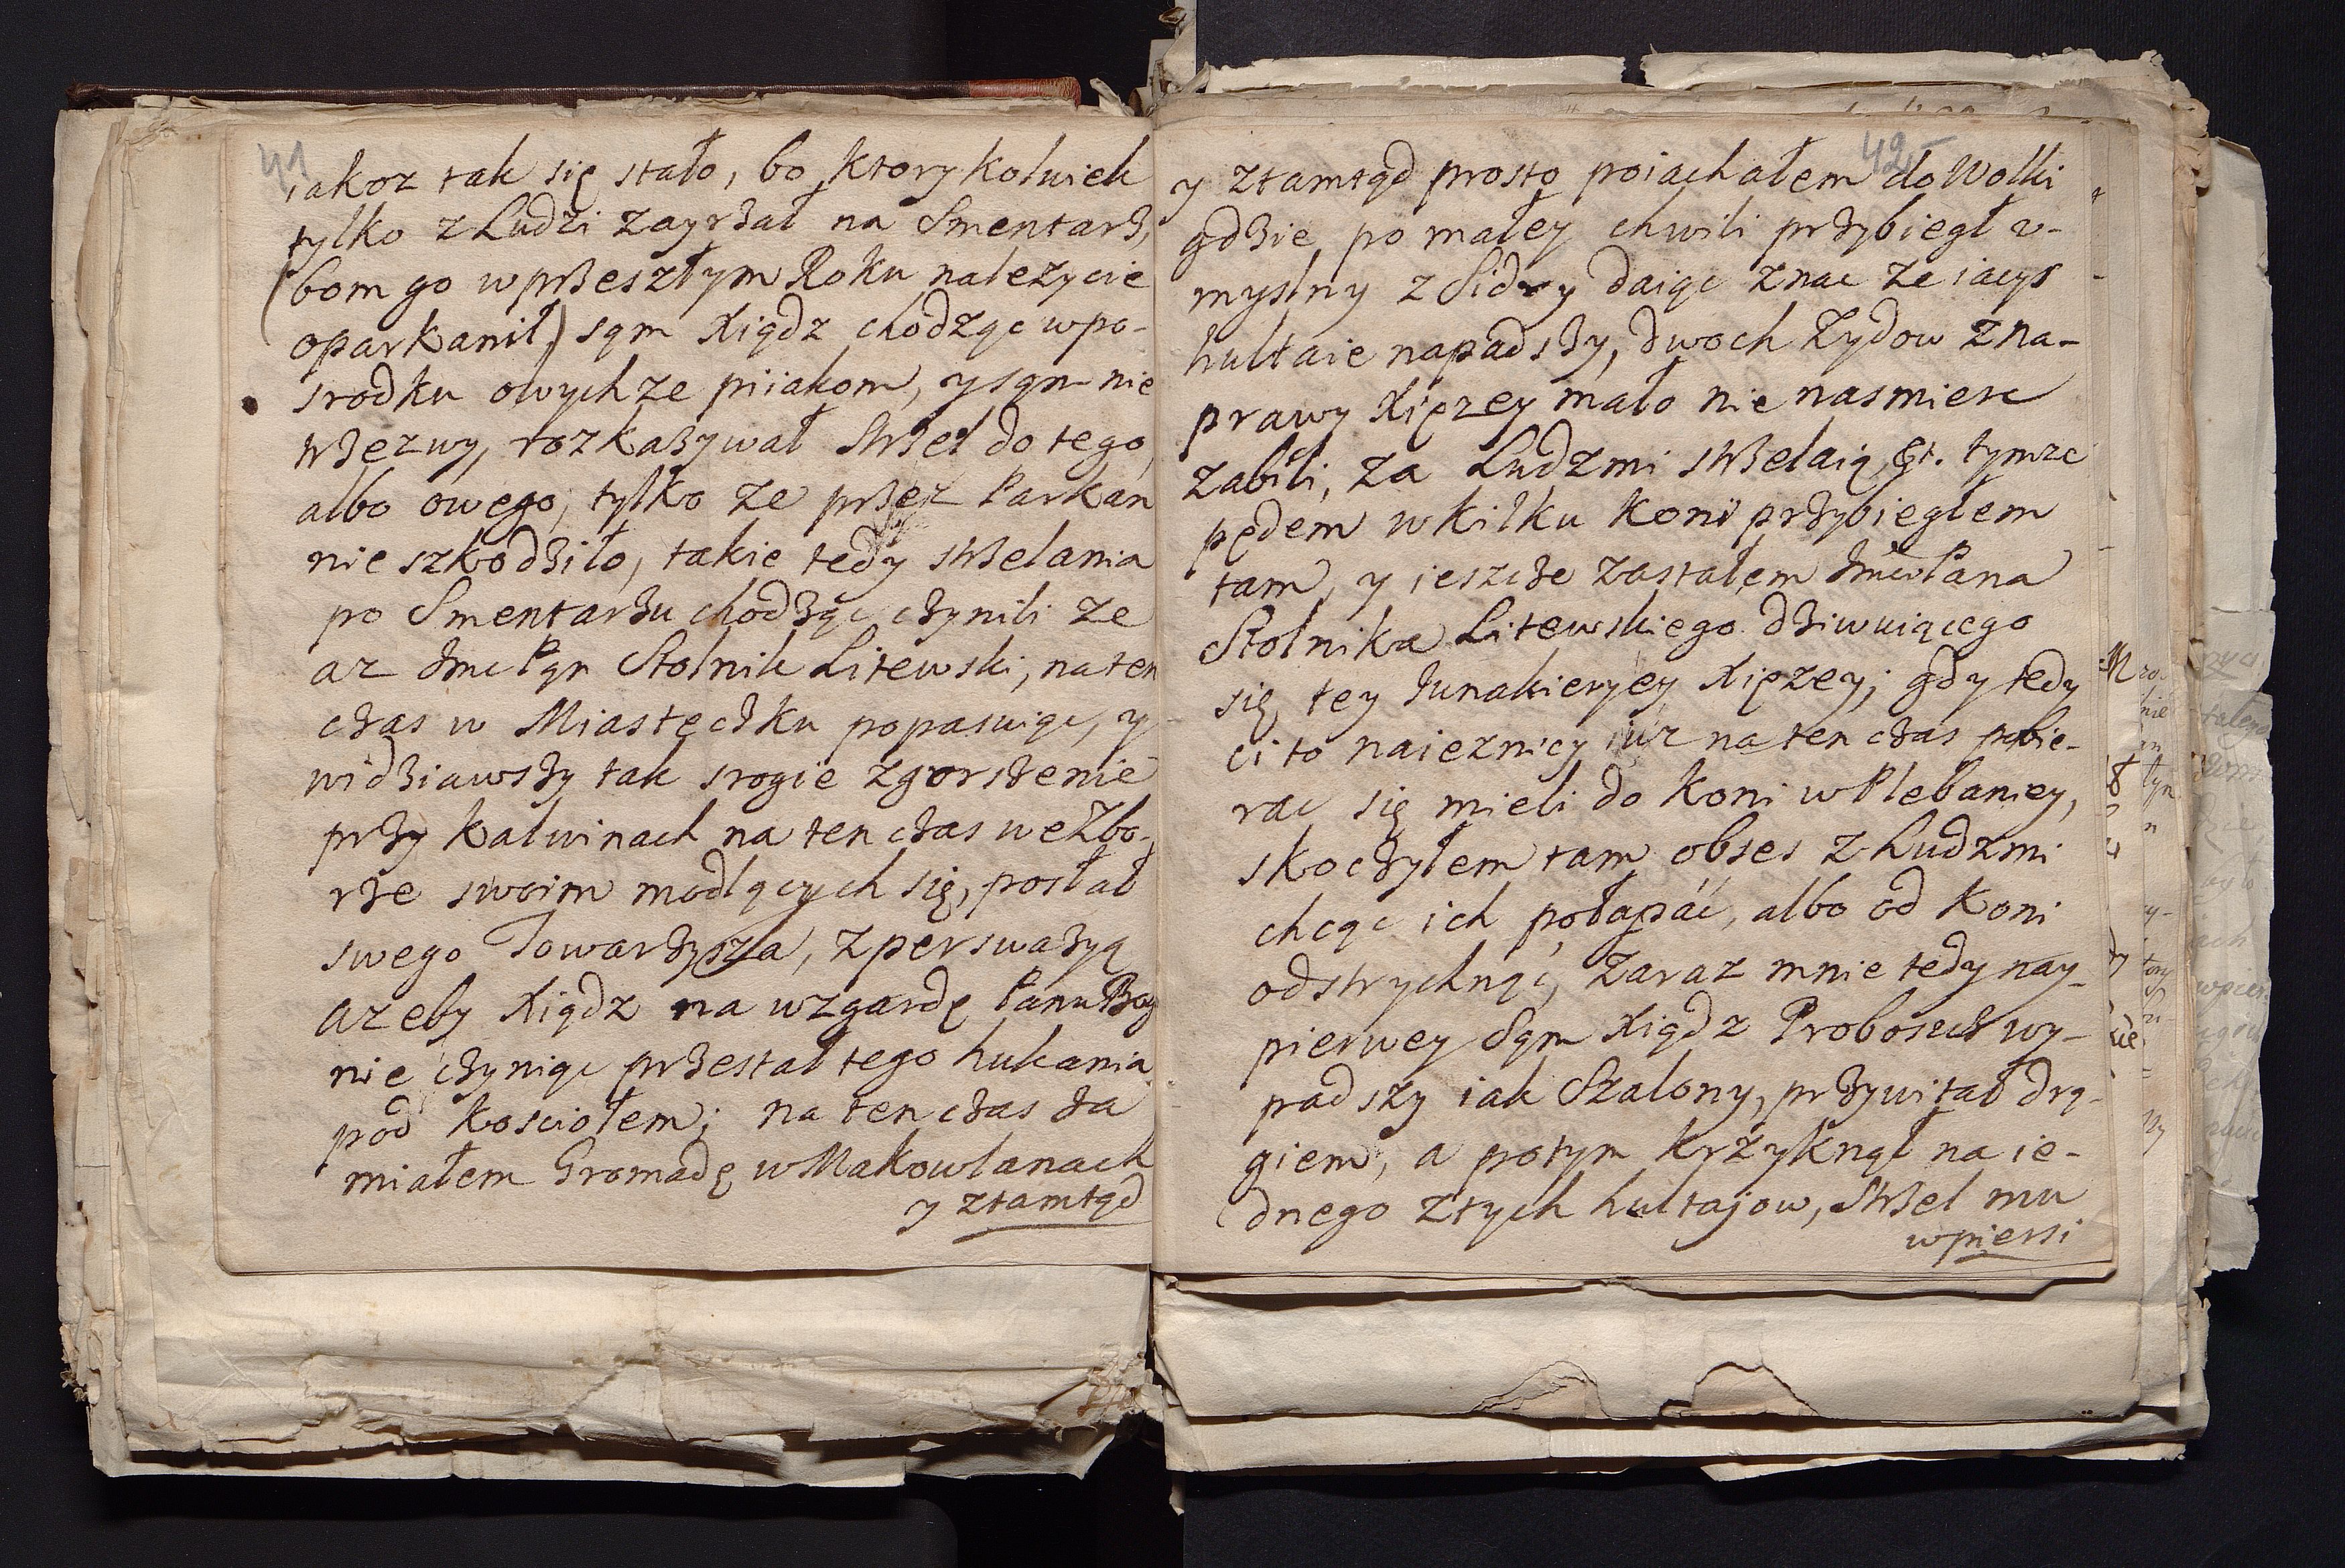 41
iakoz tak się stało, bo ktory kolwiek
tylko z Ludzi zayrzał na Smentarz,
(bom go w przeszłym Roku nalezycie
oparkanił,) sąm Xiądz chodząc wpo-
srodku owychze piiakom, y sąm nie
trzezwy, rozkazywał strzel do tego,
albo owego, tylko ze przez Parkan
nie szkodziło, takie tedy strzelania
po Smentarzu chodząc czynili ze
az Jmc Pąn Stolnik Litewski, na ten
czas w Miasteczku popasuiąc, y
widziawszy tak srogie zgorszenie
przy Kalwinach na ten czas we Zbo-
rze swoim modlących się, posłał
swego Towarzysza, z perswazyą
azeby Xiądz na wzgardę Panu Bogu
nie czyniąc przestał tego hukania
pod kosciołem; na ten czas Ja
miałem Gromadę w Makowlanach
y ztamtąd
42
y ztamtąd prosto poiachałem do Wolki
gdzie po małey chwili przybiegł u-
myslny z Sidry daiąc znac ze iacys
hultaie napadszy, dwoch Zydow z na-
prawy Xięzey mało nie nasmierc
zabili, za Ludzmi strzelaią, &t. tymze
pędem w kilku koni przybiegłem
tam, y ieszcze zastałem Jmc Pana
Stolnika Litewskiego dziwuiącego
się, tey Junakieryey Xięzey; gdy tedy
ci to naieznicy iuz na ten czas pobie-
rac się mieli do koni w Plebaniey,
skoczyłem tam obses z Ludzmi
chcąc ich połapać, albo od koni
odstrychnąć, zaraz mnie tedy nay-
pierwey Sąm Xiądz Proboszcz wy-
padszy iak Szalony, przywitał drą-
giem, a potym krzyknął na ie-
dnego ztych hultajow, strzel mu
w piersi